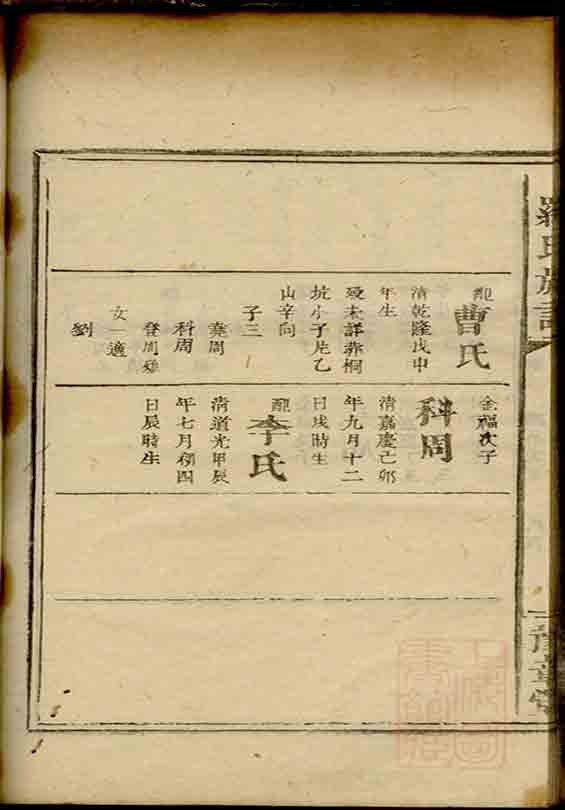 羅氏族譜
配
曹氏
清乾隆戊申
年生
歿未詳葬桐
坑小子片乙
山辛向
子三
堯周
科周
登周殀
女一適
劉
金福次子
科周
清嘉慶己卯
年九月十二
日戌時生
配
李氏
清道光甲辰
年七月初四
日辰時生
豫章堂